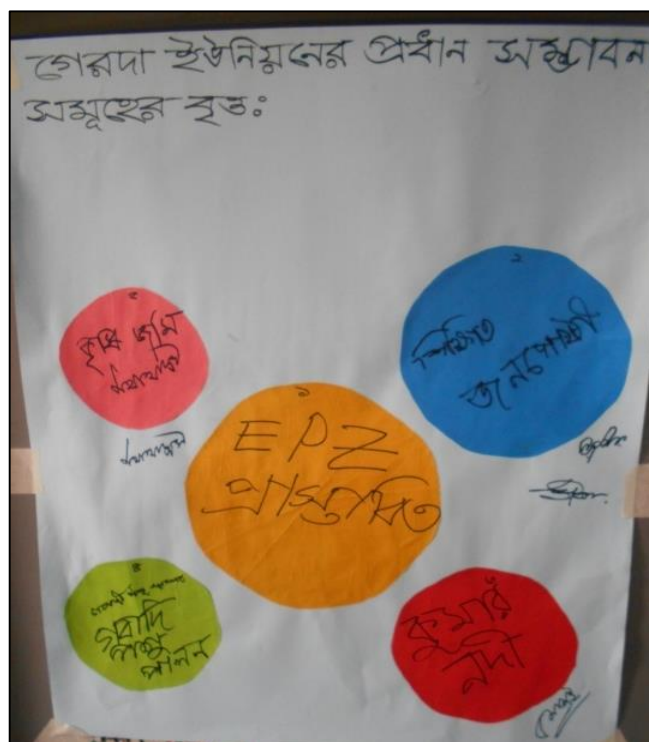 গেরদা ইউনিয়নের প্রধান সম্ভাবন
সমূহের বৃত্তঃ
৩
কৃষি জমি
২
শিক্ষিত
জনগোষ্ঠী
১
EPZ
প্রাস্তাবিত
৪
গবাদি
পশু
পালন
কুমার
নদী